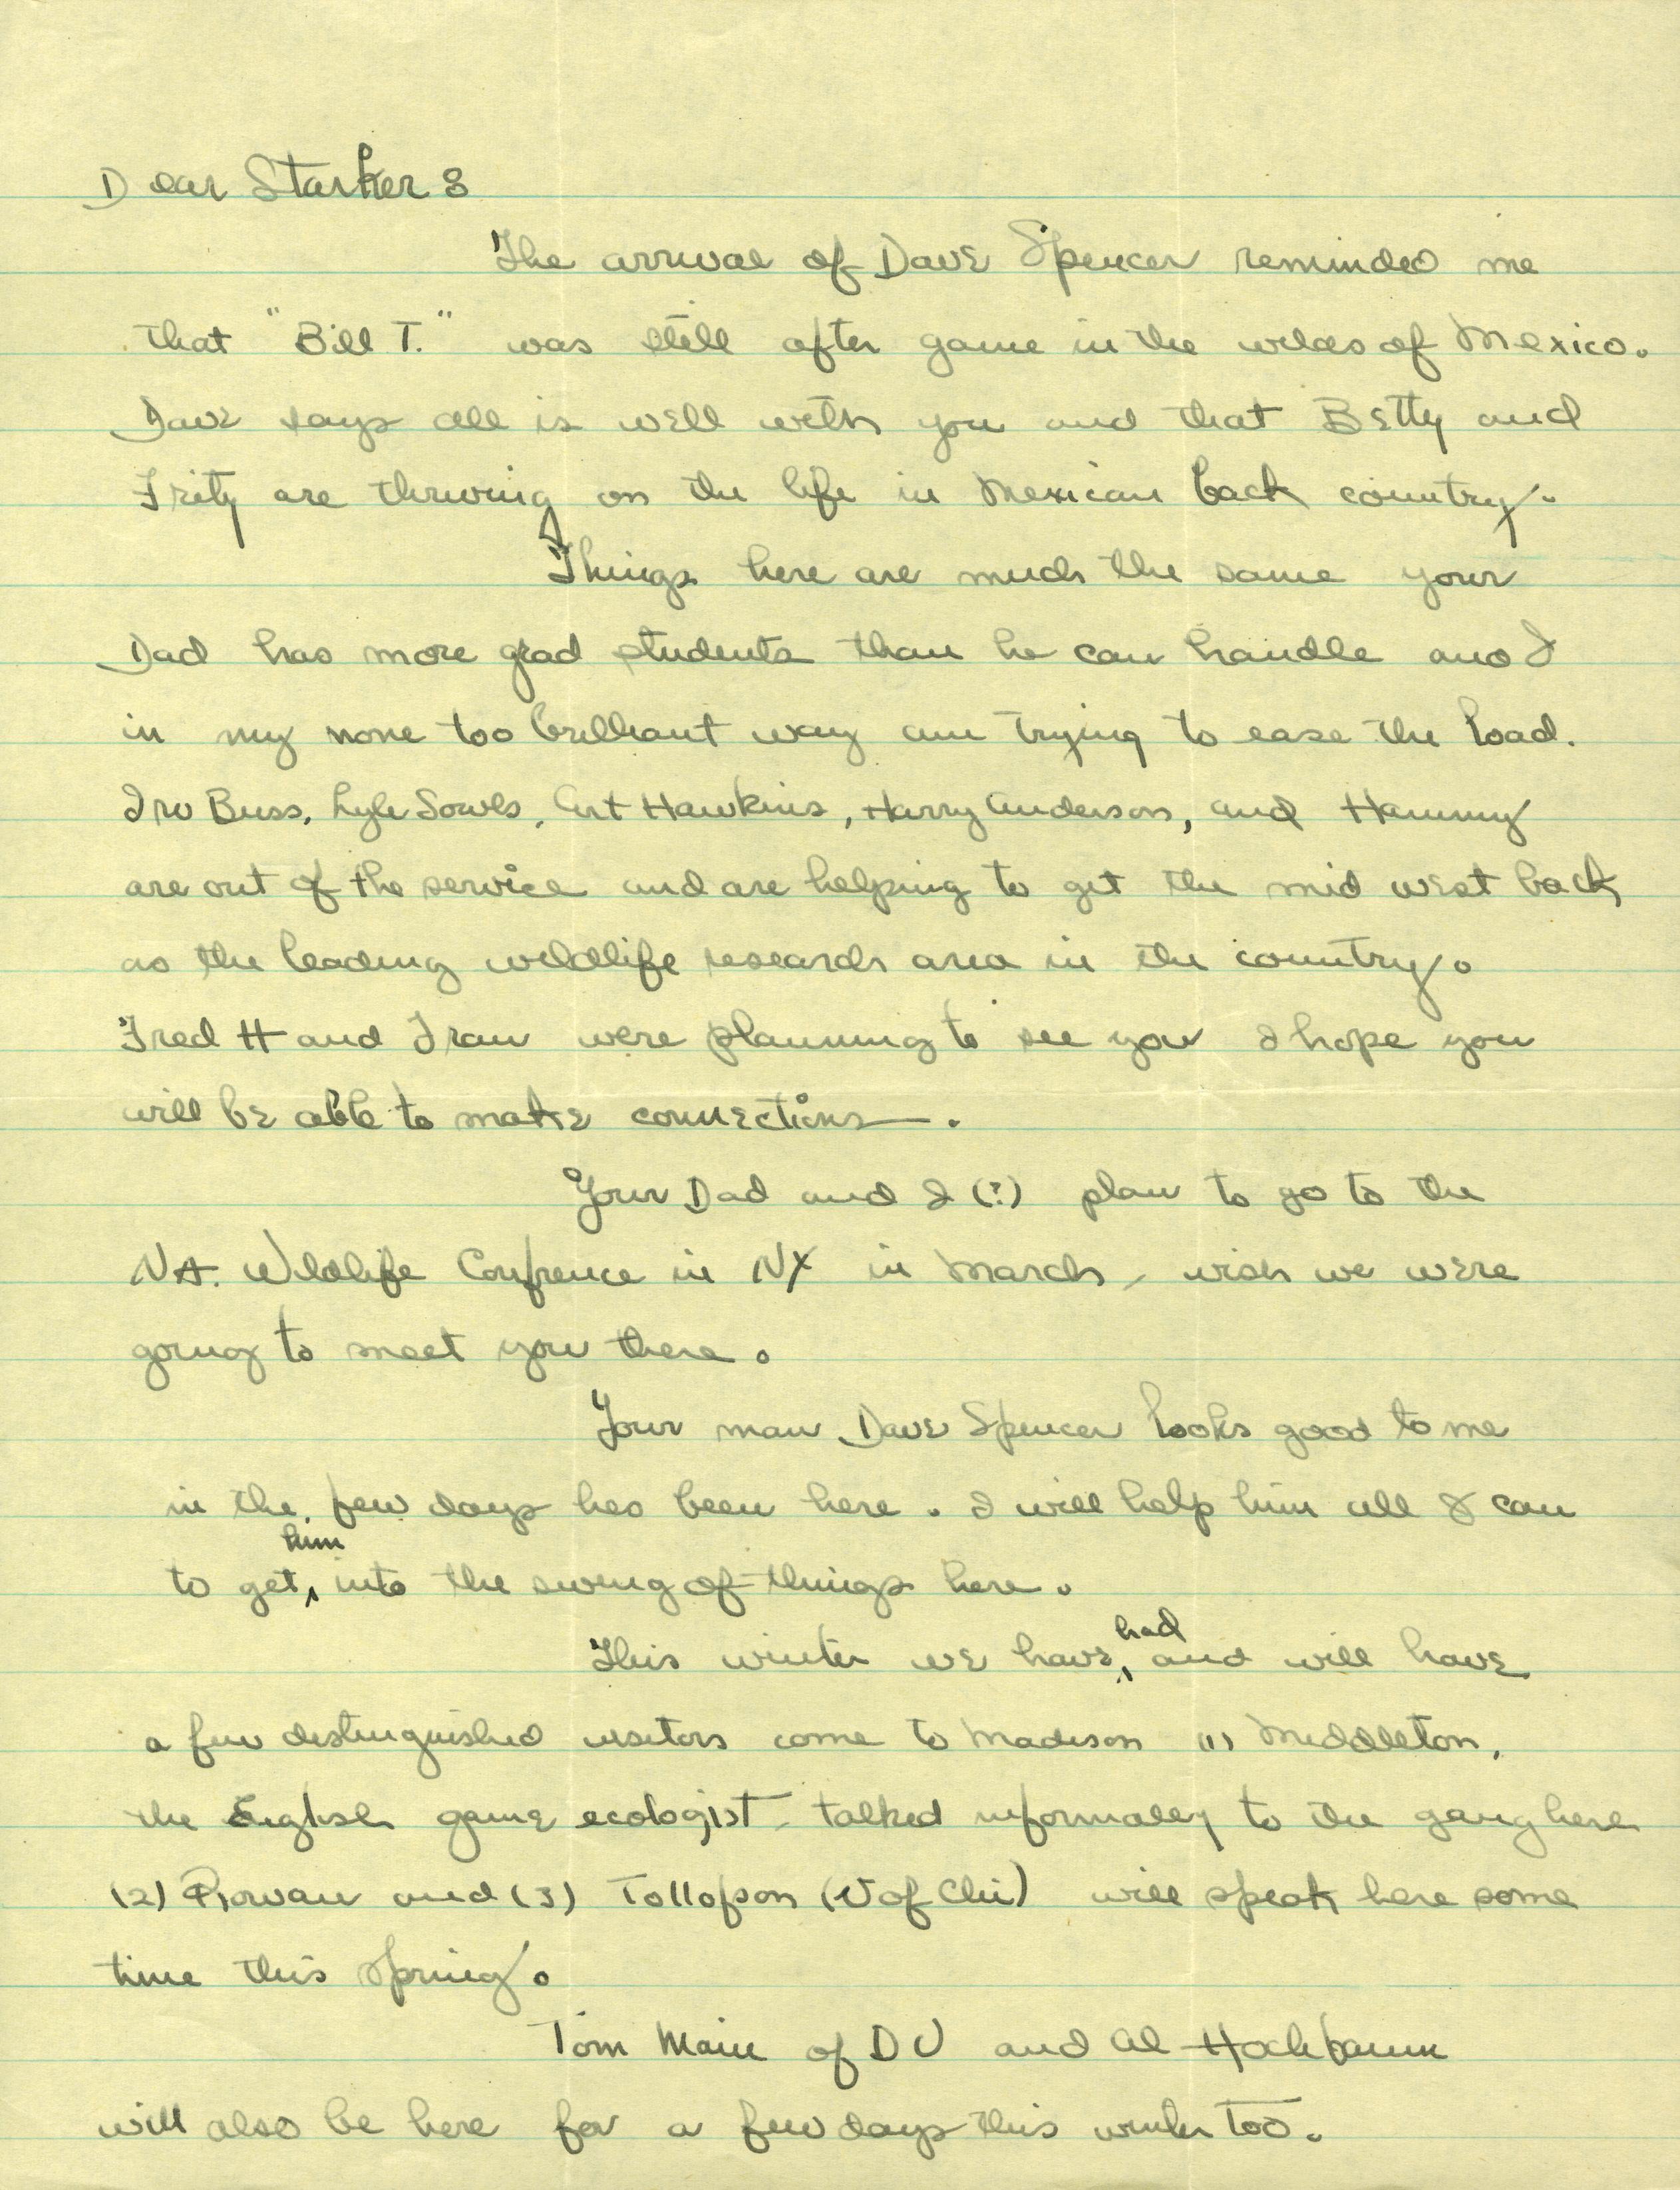 Dear Starker:
The arrival of Dave Spencer reminded me
that "Bill T." was still after game in the wilds of Mexico.
Dave says all is well with you and that Betty and
Fritz are thriving on the life in Mexican back country.
Things here are much the same your
Dad has more grad students than he can handle and I
in my none too brilliant way am trying to ease the load.
Irv Buss, Lyle Sowls, Art Hawkins, Harry Anderson, and Hammy
are out of the service and are helping to get the mid west back
as the leading wildlife research area in the country.
Fred H and Fran were planning to see you I hope you
will be able to make connections.
Your Dad and I (?) plan to go to the
NA. Wildlife Confrence in NY in March, wish we were
going to meet you there.
Your man Dave Spencer looks good to me
in the few days hes been here. I will help him all I can
to get him into the swing of things here.
This winter we have had and will have
a few distinguished visitors come to Madison (1) Middleton,
the English game ecologist, talked informally to the gang here
(2) Rowan and (3) Tollofson (U of Chi) will speak here some
time this spring.
Tom Main of DU and Al Hochbaum
will also be here for a few days this winter too.